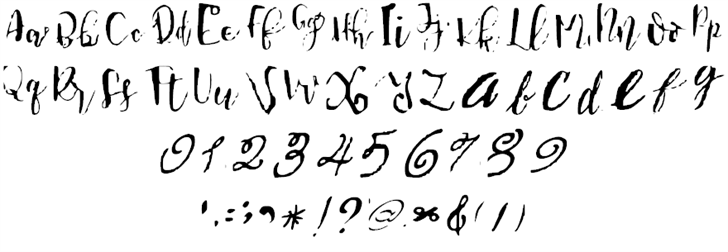 Aa Bb Cc Dd Ee Ff Gg Hh Ii Jj Kk Ll Mm Nn Oo Pp
Qq Rr Ss Tt Uu Vv Ww Xx Yy Zz a b c d e f g
0 1 2 3 4 5 6 7 8 9
' . = ; * ! ? @ % & ( / )